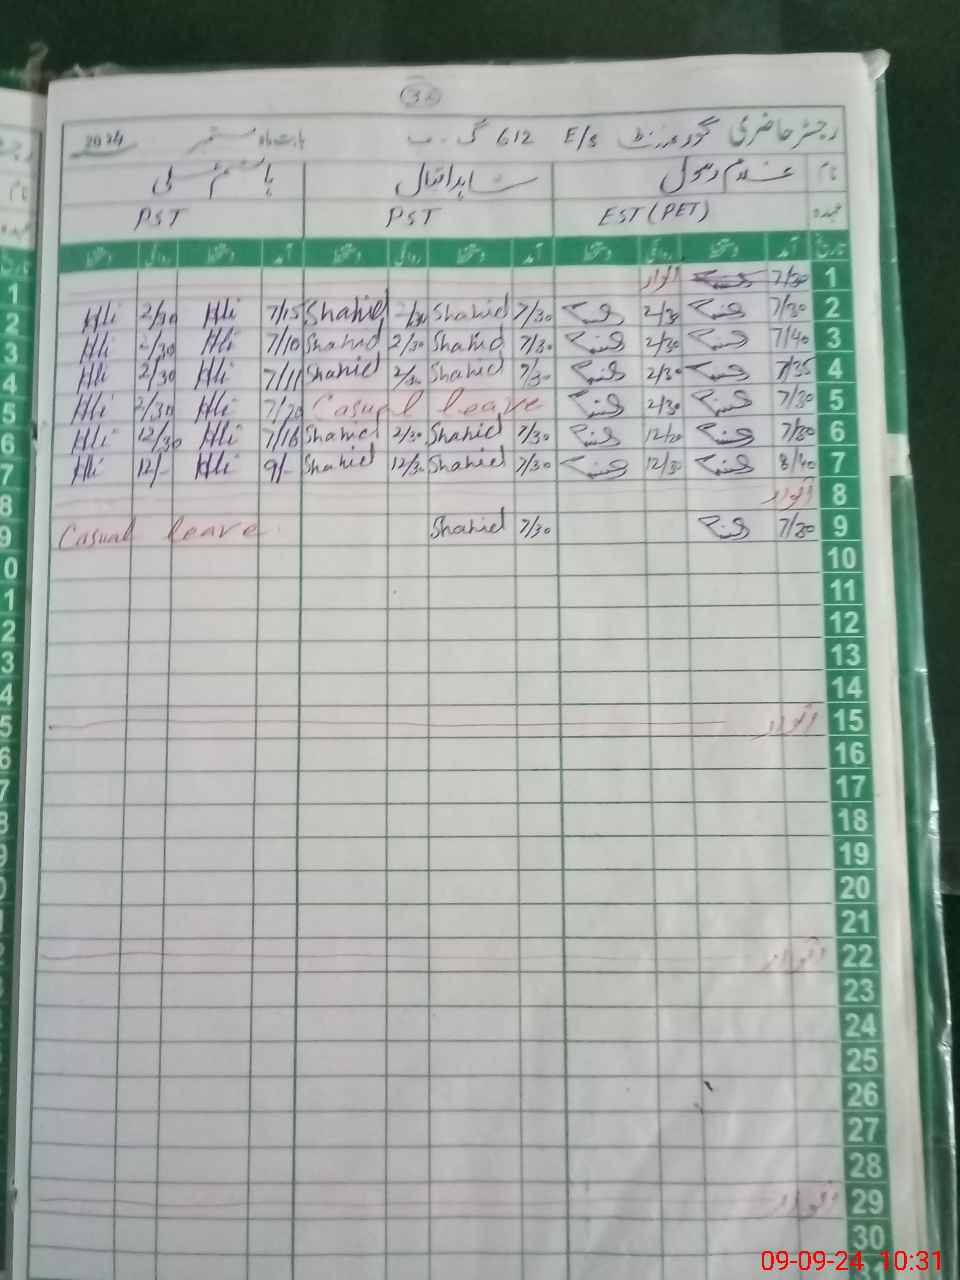 36
رجسٹر حاضری گورنمنٹ E/S 612 گ۔ب بابت ماہ ستمبر 2024
نام غلام رسول شاہد اقبال ہاشم علی
عہدہ EST (PET) PST PST
تاریخ آمد دستخط روانگی دستخط آمد دستخط روانگی دستخط آمد دستخط روانگی دستخط
1 7/30 اتوار
2 7/30 2/30 7/30 Shahid 2/30 Shahid 7/15 Ali 2/30 Ali
3 7/40 2/30 7/30 Shahid 2/30 Shahid 7/10 Ali 2/30 Ali
4 7/35 2/30 7/30 Shahid 2/30 Shahid 7/11 Ali 2/30 Ali
5 7/30 2/30 Casual leave 7/20 Ali 2/30 Ali
6 7/30 12/20 7/30 Shahid 2/30 Shahid 7/16 Ali 12/30 Ali
7 8/40 12/30 7/30 Shahid 12/30 Shahid 9/- Ali 12/- Ali
8 اتوار
9 7/30 7/30 Shahid Casual leave
10
11
12
13
14
15 اتوار
16
17
18
19
20
21
22 اتوار
23
24
25
26
27
28
29 اتوار
30
09-09-24 10:31